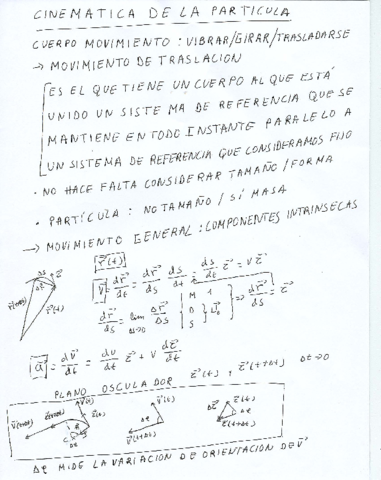 CINEMATICA DE LA PARTICULA
CUERPO MOVIMIENTO : VIBRAR/GIRAR/TRASLADARSE
→ MOVIMIENTO DE TRASLACION
ES EL QUE TIENE UN CUERPO AL QUE ESTÁ
UNIDO UN SISTEMA DE REFERENCIA QUE SE
MANTIENE EN TODO INSTANTE PARALELO A
UN SISTEMA DE REFERENCIA QUE CONSIDERAMOS FIJO
· NO HACE FALTA CONSIDERAR TAMAÑO / FORMA
· PARTÍCULA : NO TAMAÑO / SÍ MASA
→ MOVIMIENTO GENERAL : COMPONENTES INTRINSECAS
r⃗(t)
v⃗ = dr⃗/dt = dr⃗/ds ds/dt = ds/dt τ⃗ = v τ⃗
dr⃗/ds = lim Δr⃗/Δs M 1 D S ⇒ dr⃗/ds = τ⃗
a⃗ = dv⃗/dt = dv/dt τ⃗ + v dτ⃗/dt
PLANO OSCULADOR τ⃗(t) , τ⃗(t+Δt) Δt→0
v⃗(t) τ⃗(t) v⃗(t+Δt) τ⃗(t+Δt) R C Δφ
v⃗(t) Δφ v⃗(t+Δt)
Δτ⃗ τ⃗(t) τ⃗(t+Δt)
Δφ MIDE LA VARIACION DE ORIENTACION DE v⃗